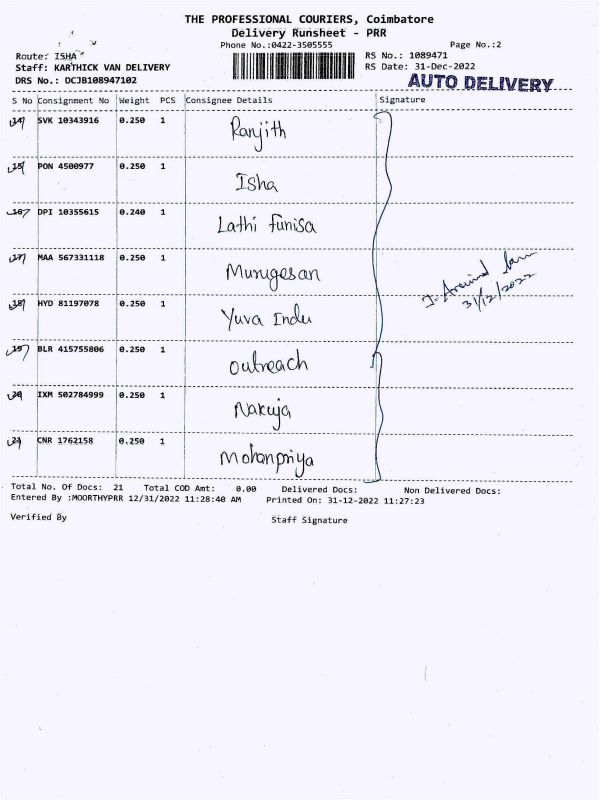 THE PROFESSIONAL COURIERS, Coimbatore
Delivery Runsheet - PRR
Phone No.:0422-3505555 Page No.:2
Route: ISHA RS No.: 1089471
Staff: KARTHICK VAN DELIVERY RS Date: 31-Dec-2022
DRS No.: DCJB108947102 AUTO DELIVERY
S No Consignment No Weight PCS Consignee Details Signature
14 SVK 10343916 0.250 1 Ranjith
15 PON 4500977 0.250 1 Isha
16 DPI 10355615 0.240 1 Lathi funisa
17 MAA 567331118 0.250 1 Murugesan
18 HYD 81197078 0.250 1 Yuva Indu
19 BLR 415755806 0.250 1 outreach
20 IXM 502784999 0.250 1 Nakuja
21 CNR 1762158 0.250 1 Mohanpriya
31/12/2022
Total No. Of Docs: 21 Total COD Amt: 0.00 Delivered Docs: Non Delivered Docs:
Entered By :MOORTHYPRR 12/31/2022 11:28:40 AM Printed On: 31-12-2022 11:27:23
Verified By Staff Signature